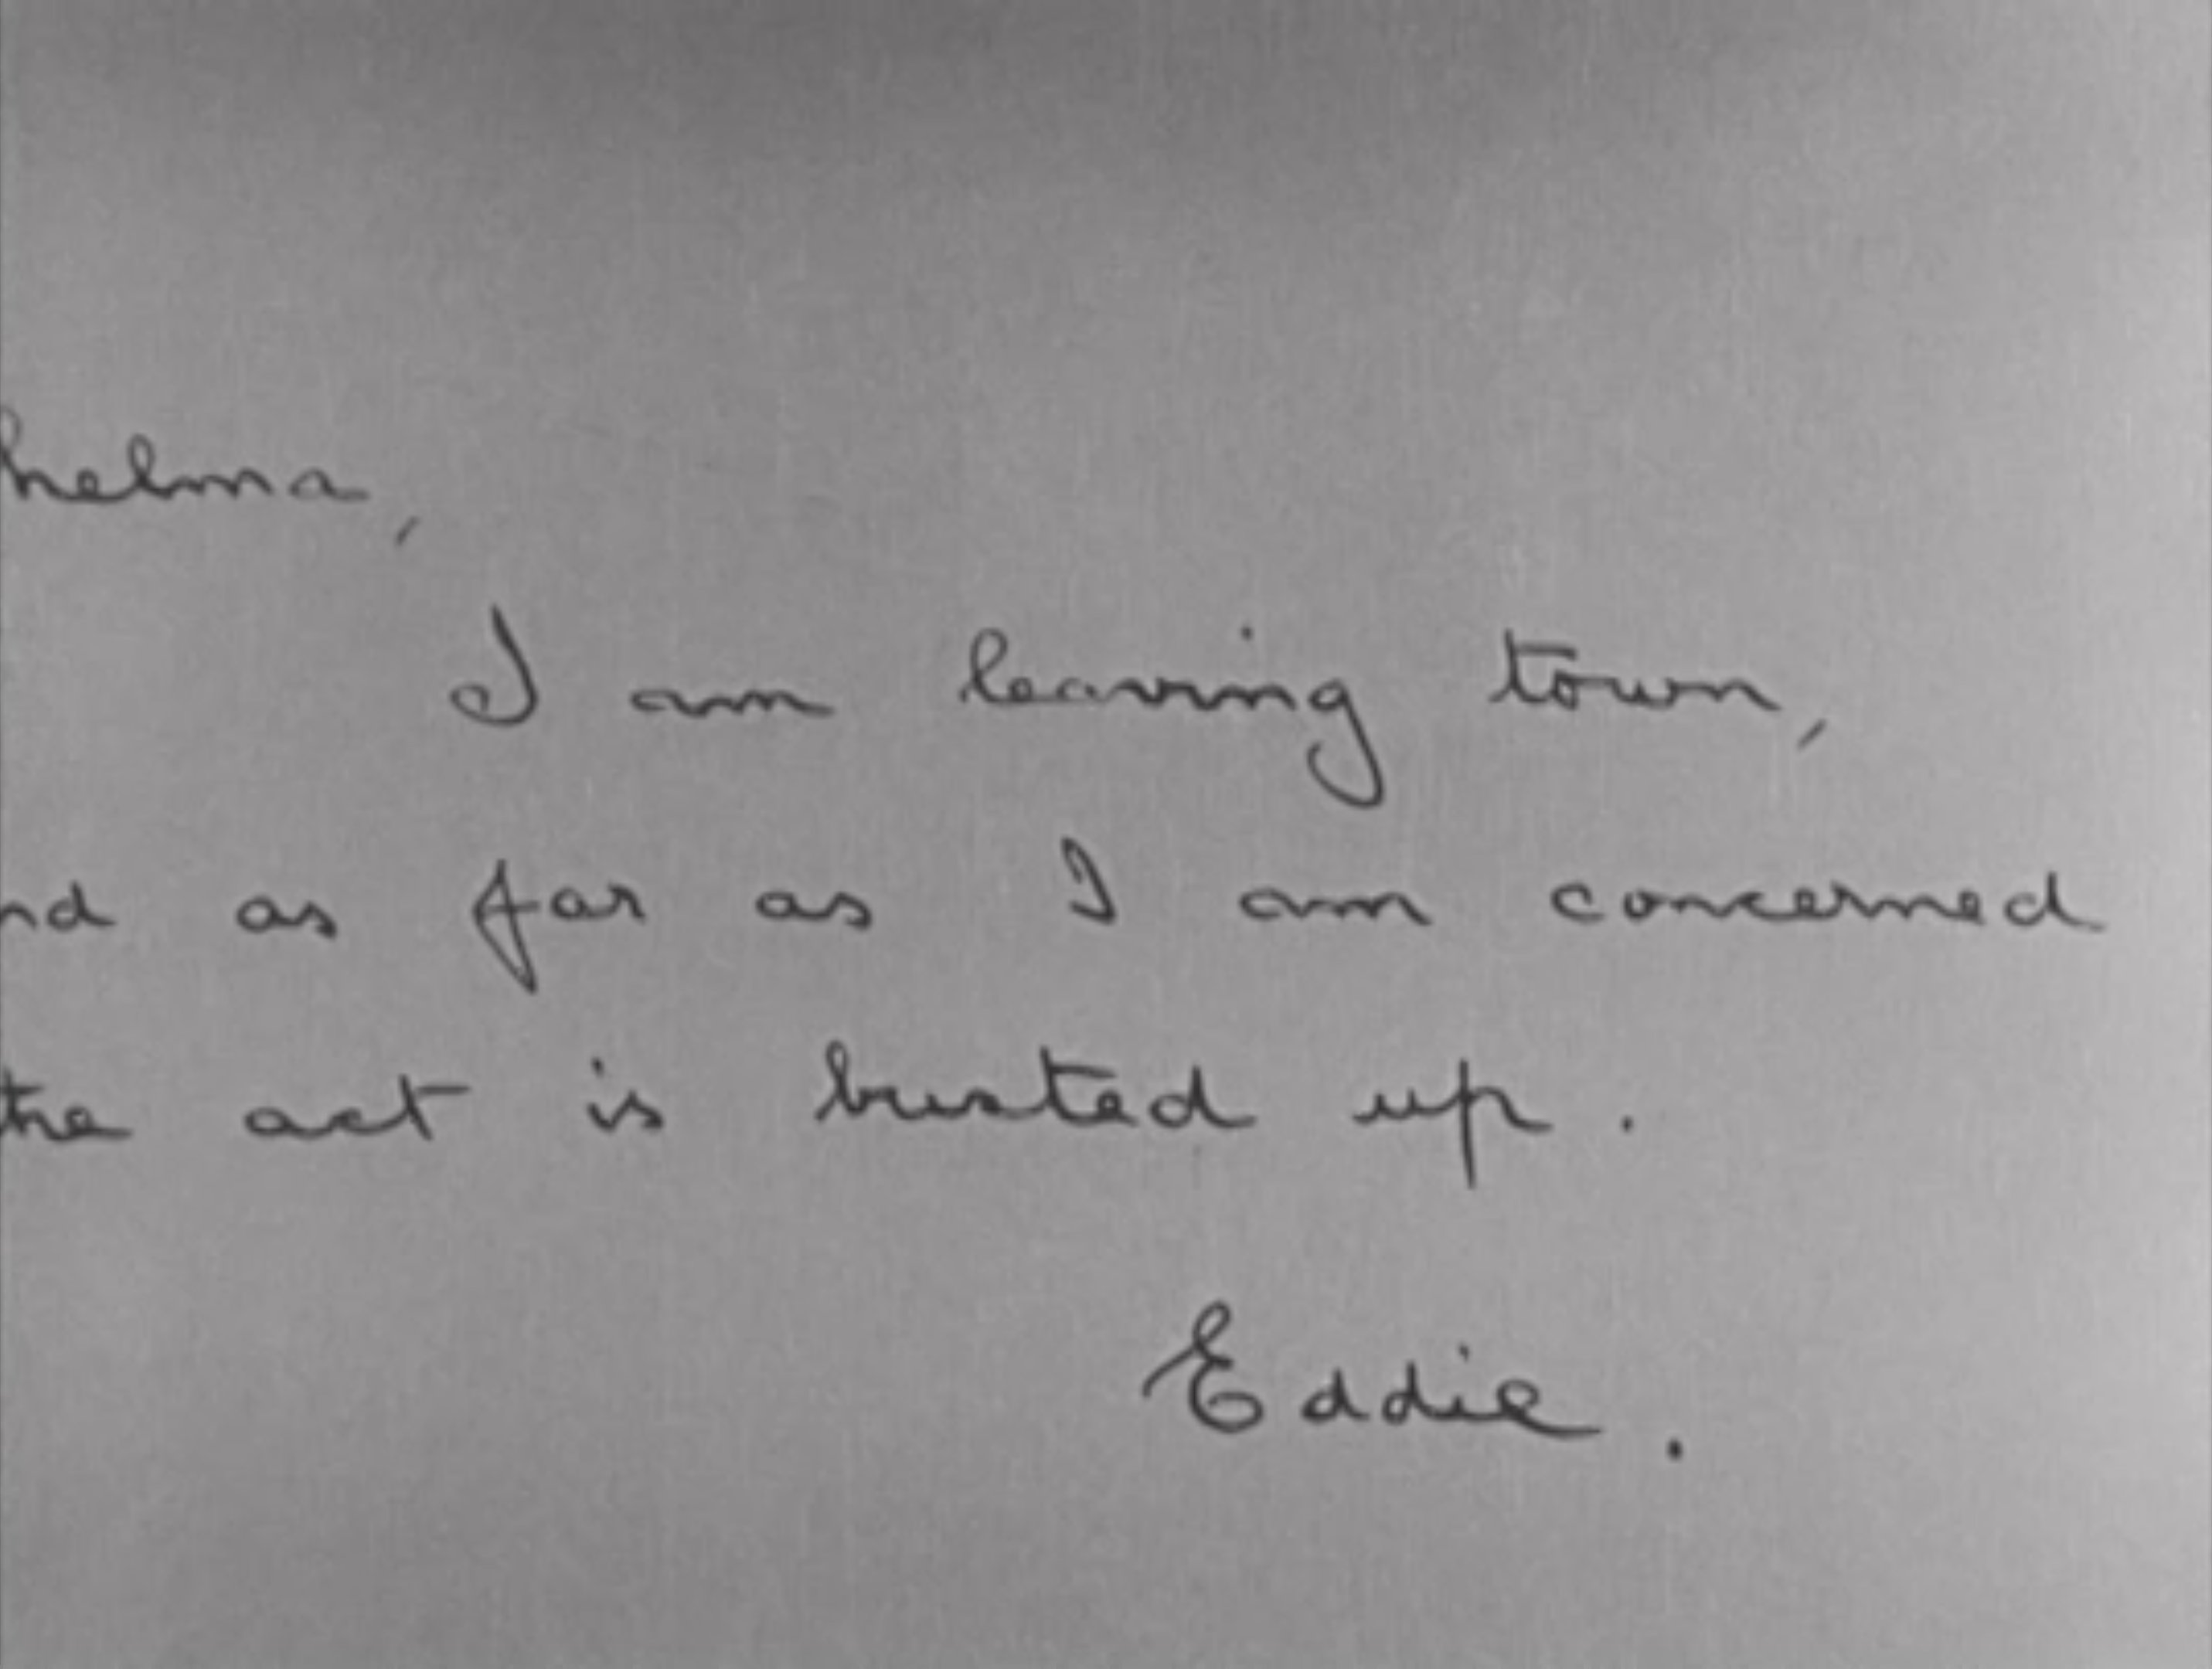 helma,
I am leaving town,
nd as far as I am concerned
the act is busted up.
Eddie.